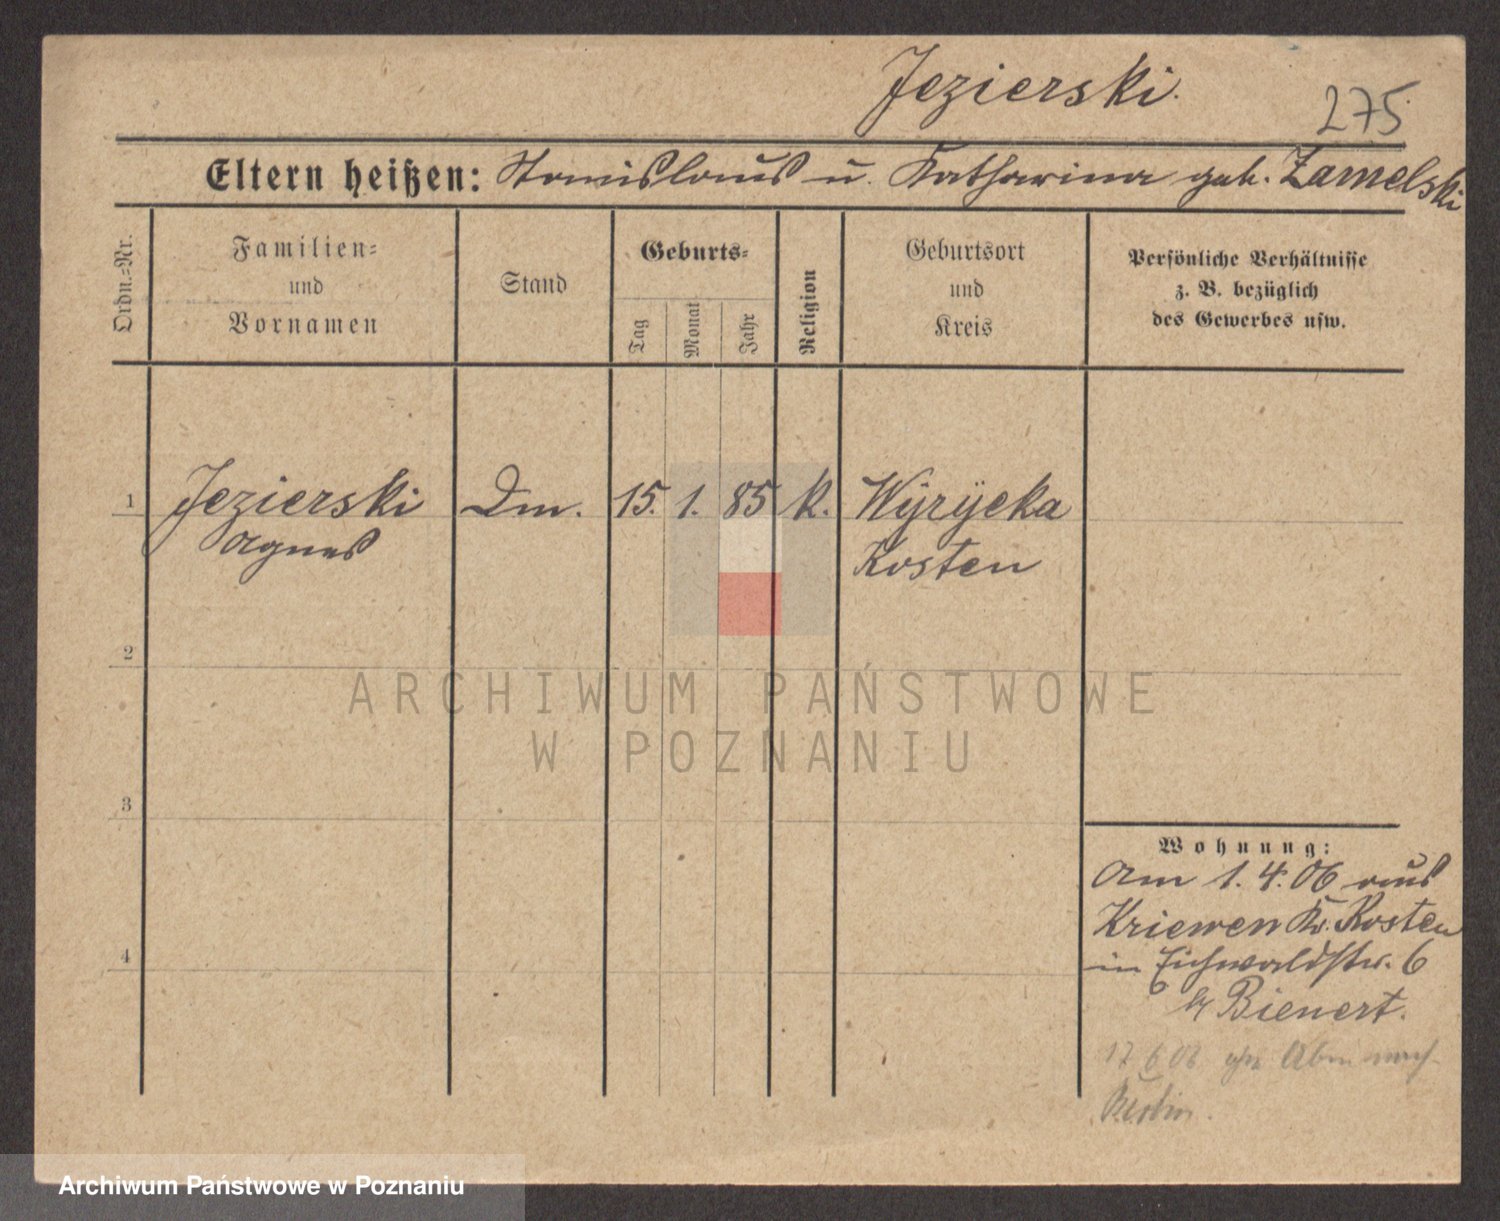 Jezierski.
275
Eltern heißen: Stanislaus u. Katharina geb. Zamelski
Ordn.=Nr.
Familien=
und
Vornamen
Stand
Geburts=
Tag
Monat
Jahr
Religion
Geburtsort
und
Kreis
Persönliche Verhältnisse
z. B. bezüglich
des Gewerbes usw.
1
Jezierski
Agnes
Dm.
15.
1.
85
k.
Wyrycka
Kosten
2
3
4
ARCHIWUM PAŃSTWOWE
W POZNANIU
Wohnung:
Am 1. 4. 06 aus
Kriewen Kr. Kosten
in Eichwaldstr. 6
b/ Bienert.
17 6 06 ohne Abm nach
Berlin.
Archiwum Państwowe w Poznaniu